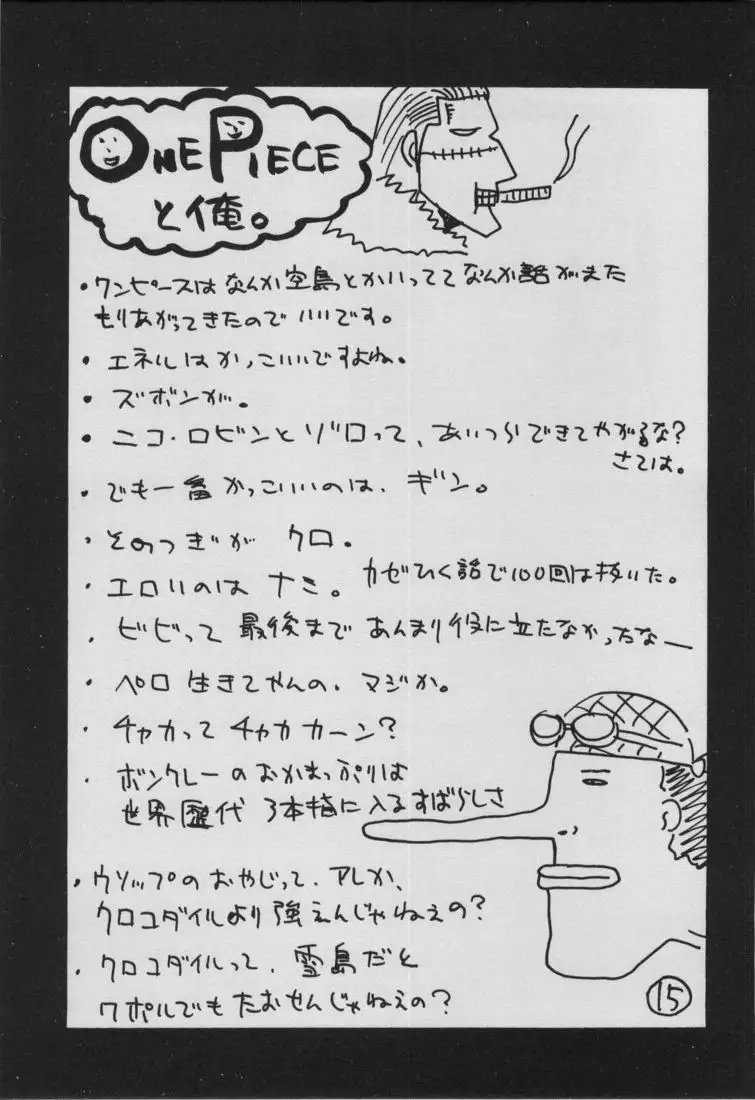 ONE PIECE
と俺。
・ワンピースはなんか空島とかいってて なんか話がまた
もりあがってきたので いいです。
・エネルはかっこいいですよね。
・ズボンが。
・ニコ・ロビンと ゾロって、あいつらできてやがるな?
さては。
・でも一番かっこいいのは、ギン。
・そのつぎが クロ。
・エロいのは ナミ。 カゼひく話で100回は抜いた。
・ビビって 最後まで あんまり役に立たなかったなー
・ペロ 生きてやんの、マジか。
・チャカって チャカ カーン?
・ボンクレーのおかまっぷりは
世界歴代 3本指に入るすばらしさ
・ウソップのおやじって、アレか、
クロコダイルより強えんじゃねえの?
・クロコダイルって、雪島だと
ワポルでもたおせんじゃねえの?
15